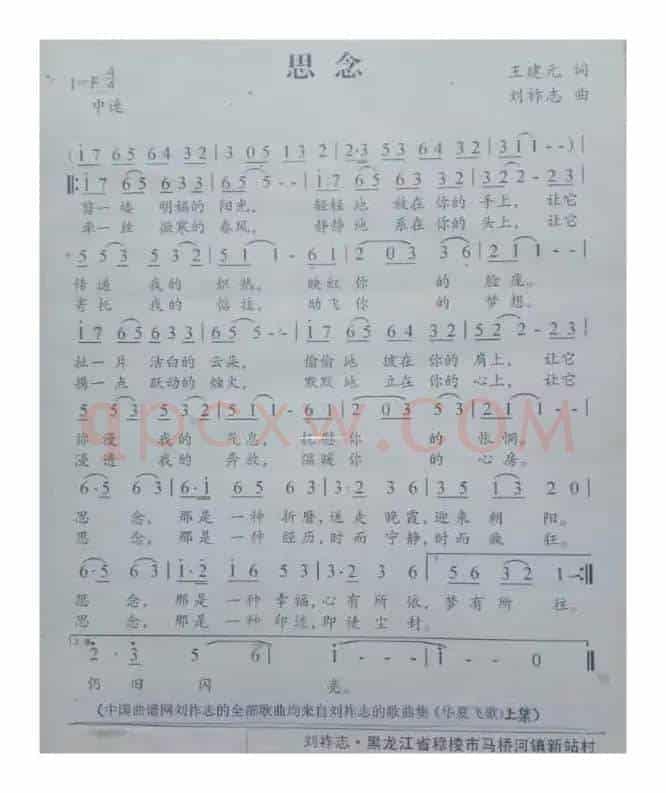 思念
1=F 4/4
王建元 词
中速
刘祚志 曲
(i 7 6 5 6 4 3 2 | 3 0 5 1 3 2 | 2· 3 5 3 6 4 3 2 | 3 1 1 - - )
‖: i 7 6 5 6 3 3 | 6 5 5 - - | i· 7 6 5 6 3 3 2 | 3 2 2 - 2 3 |
剪一缕 明媚的 阳光, 轻轻地 放在你的 手上, 让它
采一丝 微寒的 春风, 静静地 系在你的 头上, 让它
5 5 3 3 3 2 | 5 1 1 - 6 1 | 2 0 3 3 6 | 2 1 1 - - |
传递 我的 炽热, 映红你 的 脸庞。
寄托 我的 惦往, 助飞你 的 梦想。
i 7 6 5 6 3 3 | 6 5 5 - - | i 7 6 5 6 4 3 2 | 5 2 2 - 2 3 |
扯一片 洁白的 云朵, 偷偷地 披在你的 肩上, 让它
携一点 跃动的 烛火, 默默地 立在你的 心上, 让它
5 5 3 5 3 2 | 5 1 1 - 6 1 | 2 0 3 5 3 | 2 1 1 - - |
弥漫 我的 气息, 抚慰你 的 惆怅。
浸透 我的 奔放, 温暖你 的 心房。
qpcxw.COM
6· 5 6 3 | 6· i 6 5 6 3 | 3· 2 3 6 | 3 5 1 3 2 0 |
思 念, 那是 一种 折磨, 送走 晚霞, 迎来 朝 阳。
思 念, 那是 一种 经历, 时而 宁静, 时而 疯 狂。
6· 5 6 3 | i· 2 i 6 5 3 | 3· 2 3 6 | 5 6 3 2 1 - :‖
思 念, 那是 一种 幸福, 心有 所依, 梦有 所 往。
思 念, 那是 一种 印迹, 即使 尘封。
2 · 3 5 6 | i - - - | i - - 0 ‖
仍 旧 闪 亮。
(中国曲谱网刘祚志的全部歌曲均来自刘祚志的歌曲集《华夏飞歌》上集)
刘祚志·黑龙江省穆棱市马桥河镇新站村